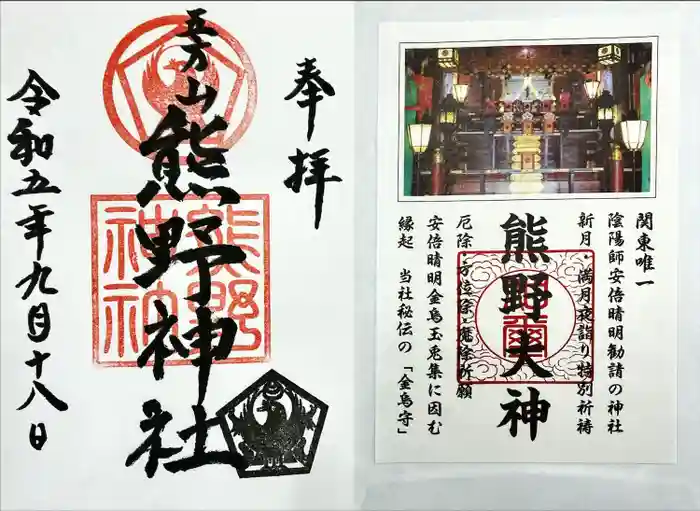 奉拝
五方山
熊野神社
熊野
神社
令和五年九月十八日
関東唯一
陰陽師安倍晴明勧請の神社
新月・満月夜詣り特別祈祷
熊野大神
厄除・方位除・魔除祈願
安倍晴明金烏玉兎集に因む
縁起 当社秘伝の「金烏守」